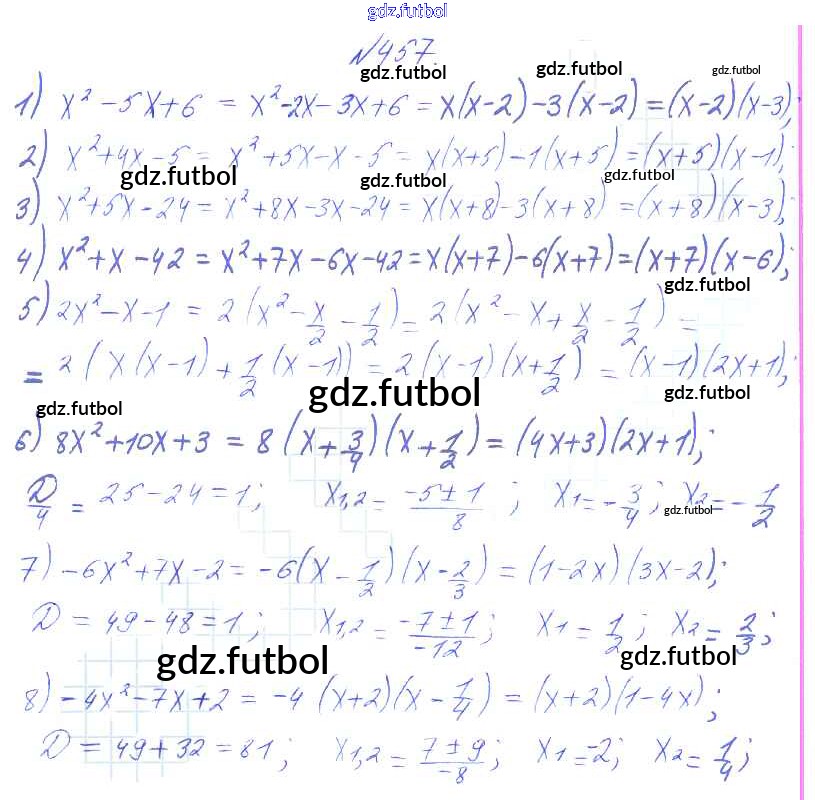 gdz.futbol
№457.
gdz.futbol gdz.futbol gdz.futbol
1) x² - 5x + 6 = x² - 2x - 3x + 6 = x(x-2) - 3(x-2) = (x-2)(x-3);
2) x² + 4x - 5 = x² + 5x - x - 5 = x(x+5) - 1(x+5) = (x+5)(x-1);
gdz.futbol gdz.futbol gdz.futbol
3) x² + 5x - 24 = x² + 8x - 3x - 24 = x(x+8) - 3(x+8) = (x+8)(x-3);
4) x² + x - 42 = x² + 7x - 6x - 42 = x(x+7) - 6(x+7) = (x+7)(x-6);
gdz.futbol
5) 2x² - x - 1 = 2(x² - x/2 - 1/2) = 2(x² - x + x/2 - 1/2) =
= 2(x(x-1) + 1/2(x-1)) = 2(x-1)(x+1/2) = (x-1)(2x+1);
gdz.futbol gdz.futbol gdz.futbol
6) 8x² + 10x + 3 = 8(x + 3/4)(x + 1/2) = (4x+3)(2x+1);
D/4 = 25 - 24 = 1; x1,2 = (-5 ± 1)/8; x1 = -3/4; x2 = -1/2
gdz.futbol
7) -6x² + 7x - 2 = -6(x - 1/2)(x - 2/3) = (1-2x)(3x-2);
D = 49 - 48 = 1; x1,2 = (-7 ± 1)/-12; x1 = 1/2; x2 = 2/3;
gdz.futbol gdz.futbol
8) -4x² - 7x + 2 = -4(x+2)(x - 1/4) = (x+2)(1-4x);
D = 49 + 32 = 81; x1,2 = (7 ± 9)/-8; x1 = -2; x2 = 1/4;